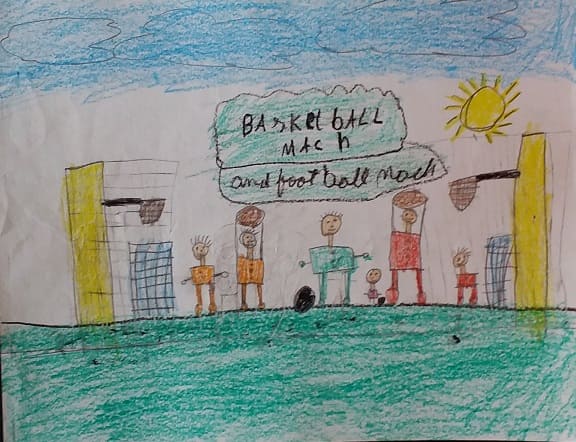 BASKEtbALL
MACh
and foot ball mach